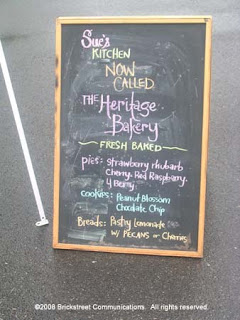 Sue's
KITCHEN
NOW
CALLED
THE Heritage
Bakery
FRESH BAKED
pies: strawberry rhubarb
cherry. Red Raspberry.
4 Berry
cookies: Peanut Blossom
Chocolate Chip
Breads: Pastry Lemonate
w/ PECANS or Cherries
©2008 Brickstreet Communications. All rights reserved.